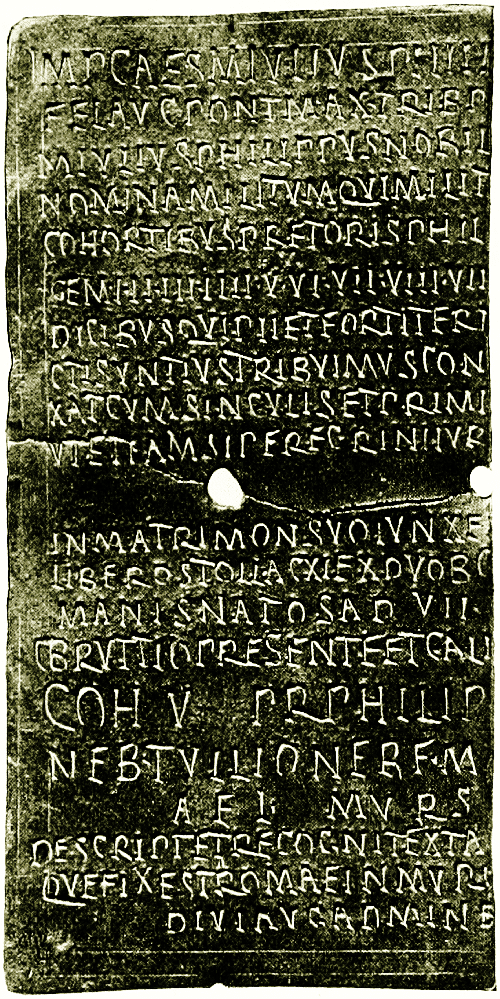 IMP CAES M IVLIVS PHILI
FEL AVG PONT MAX TRIB P
M IVLIVS PHILIPPVS NOBIL
NOMINA MILITVM QVI MILIT
COHORTIBVS PRETORIS PHIL
GEM I II III IIII V VI VII VIII VII
DICIBVS QVI PII ET FORTITER
CTI SVNT IVS TRIBVIMVS CON
XAT CVM SINGVLIS ET PRIMI
VT ETIAM SI PEREGRINI IVR
IN MATRIMON SVO IVNXE
LIBEROS TOLLAC XI EX DVOB C
MANIS NATOS A D VII
C BRVTTIO PRESENTE ET C ALL
COH V PR PHILIP
NEB TVLLIO NERE F M
AEL MVRS
DESCRIPT ET RECOGNIT EX TA
QVE FIXE ST ROMAE IN MVR
DIVI AVG AD MINE